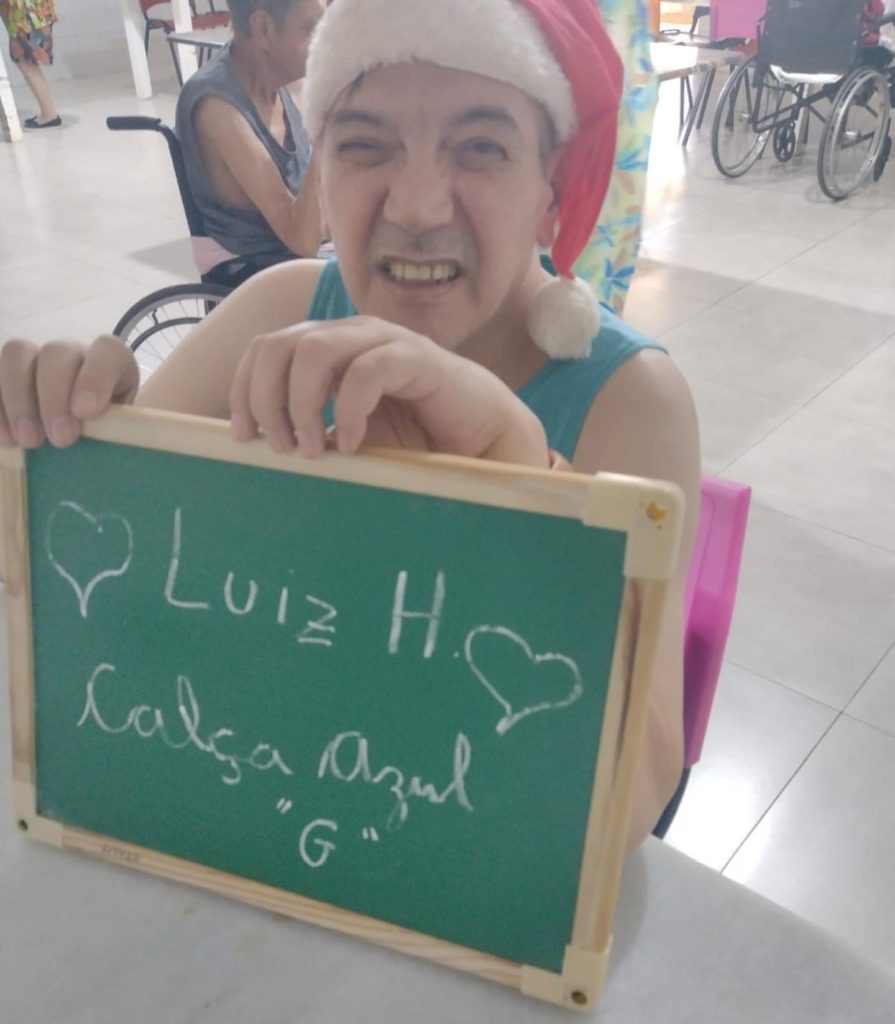 Luiz H.
Calça Azul
"G"